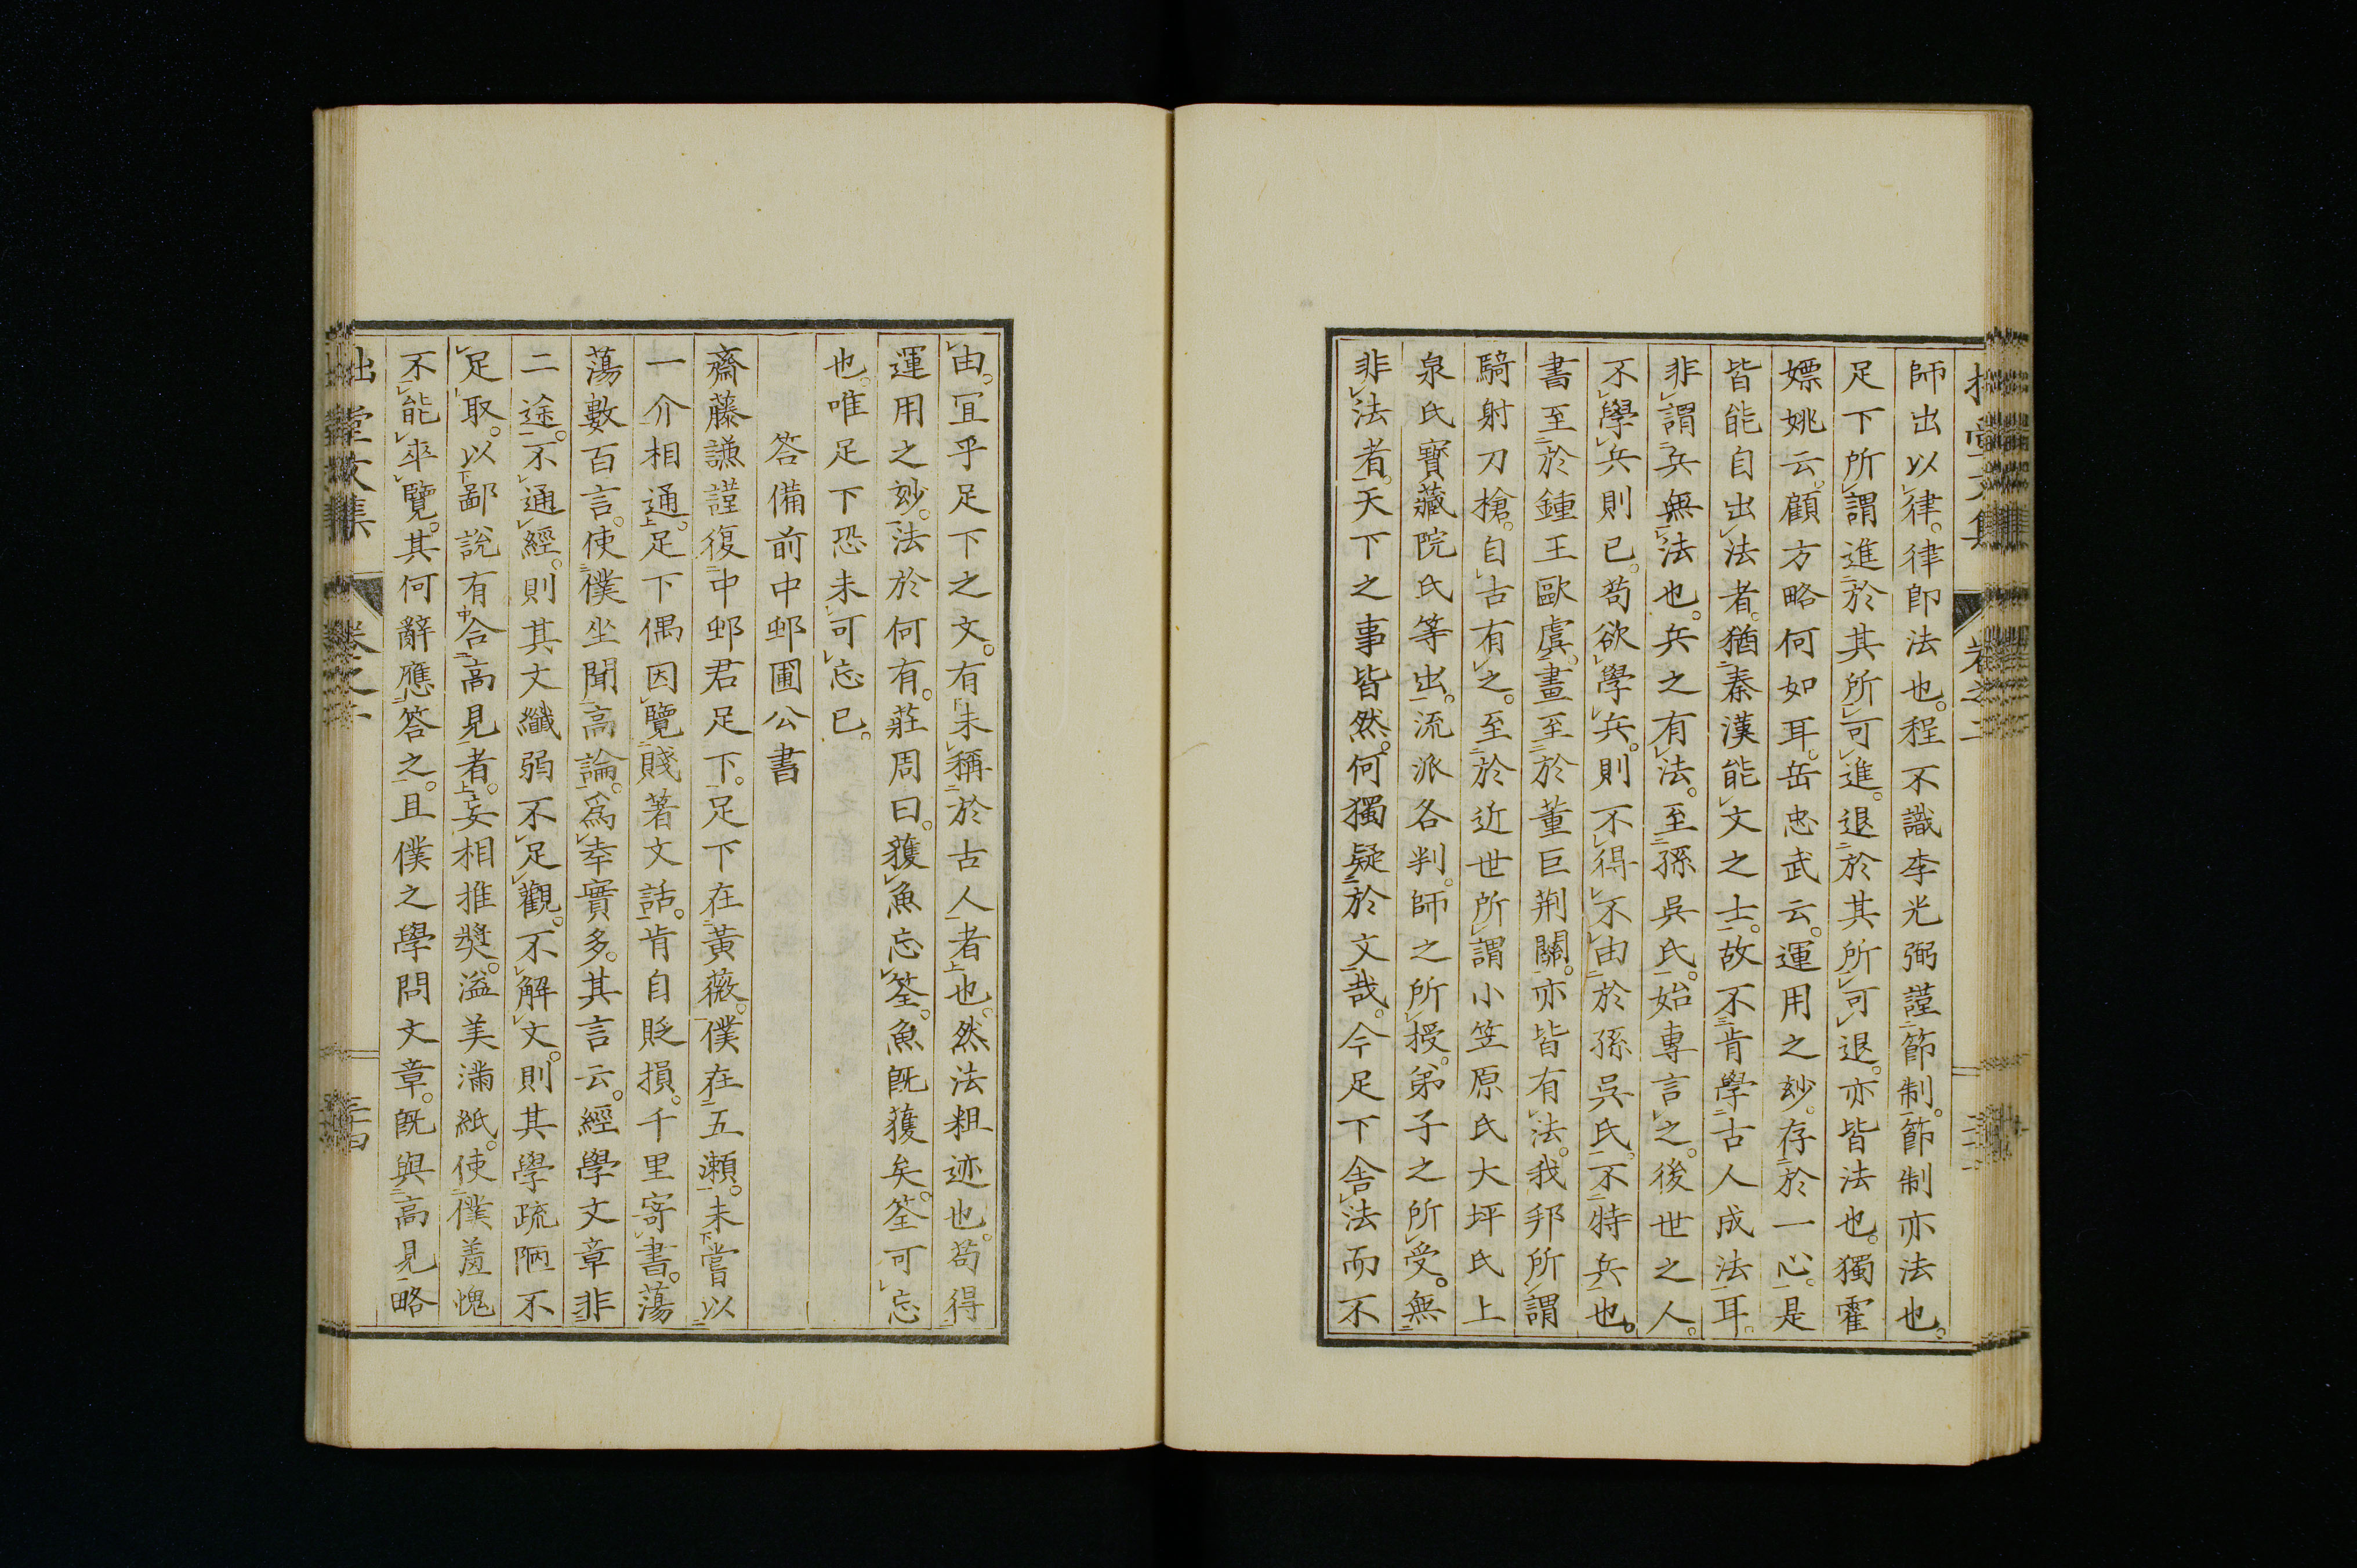 師出以律。律卽法也。程不識李光弼謹節制。節制亦法也。
足下所謂進於其所可進。退於其所可退。亦皆法也。獨霍
嫖姚云。顧方略何如耳。岳忠武云。運用之玅。存於一心。是
皆能自出法者。猶秦漢能文之士。故不肯學古人成法耳。
非謂兵無法也。兵之有法。至孫吳氏。始專言之。後世之人。
不學兵則已。苟欲學兵。則不得不由於孫吳氏。不特兵也。
書至於鍾王歐虞。畫至於董巨荆關。亦皆有法。我邦所謂
騎射刀槍。自古有之。至於近世所謂小笠原氏大坪氏上
泉氏寳藏院氏等出。流派各判。師之所授。弟子之所受。無
非法者。天下之事皆然。何獨疑於文哉。今足下舍法而不
由。宜乎足下之文。有未稱於古人者也。然法粗迹也。苟得
運用之玅。法於何有。莊周曰。獲魚忘筌。魚旣獲矣。筌可忘
也。唯足下恐未可忘已。
答備前中邨圃公書
齋藤謙謹復中邨君足下。足下在黃薇。僕在五瀬。未嘗以
一介相通。足下偶因覽賤著文話。肯自貶損。千里寄書。蕩
蕩數百言。使僕坐聞高論。爲幸實多。其言云。經學文章非
二途。不通經。則其文纖弱不足觀。不解文。則其學疏陋不
足取。以鄙說有合高見者。妄相推奬。溢美滿紙。使僕羞愧
不能卒覽。其何辭應答之。且僕之學問文章。旣與高見略
拙堂文集 卷之 三十四